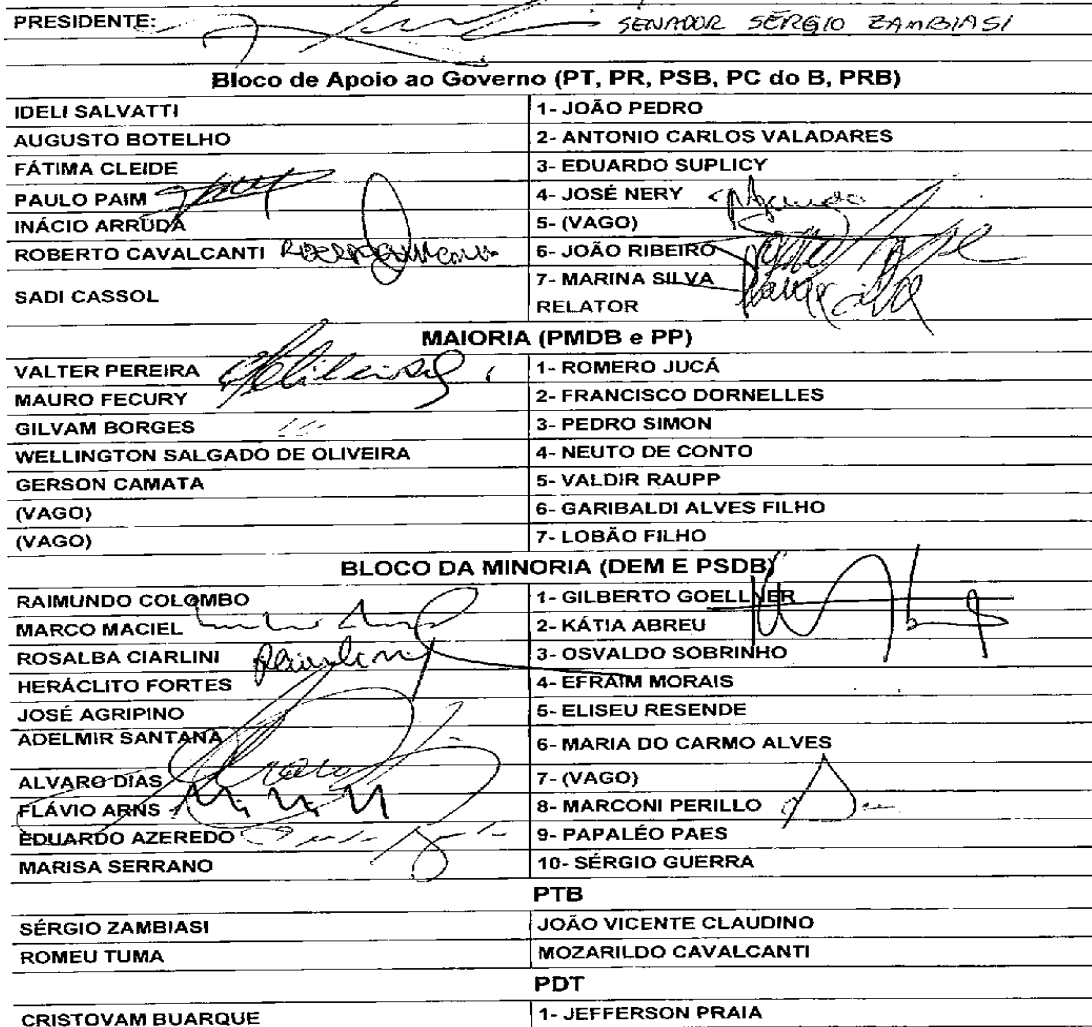 PRESIDENTE: SENADOR SÉRGIO ZAMBIASI
Bloco de Apoio ao Governo (PT, PR, PSB, PC do B, PRB)
IDELI SALVATTI 1- JOÃO PEDRO
AUGUSTO BOTELHO 2- ANTONIO CARLOS VALADARES
FÁTIMA CLEIDE 3- EDUARDO SUPLICY
PAULO PAIM 4- JOSÉ NERY
INÁCIO ARRUDA 5- (VAGO)
ROBERTO CAVALCANTI 6- JOÃO RIBEIRO
SADI CASSOL 7- MARINA SILVA
RELATOR
MAIORIA (PMDB e PP)
VALTER PEREIRA 1- ROMERO JUCÁ
MAURO FECURY 2- FRANCISCO DORNELLES
GILVAM BORGES 3- PEDRO SIMON
WELLINGTON SALGADO DE OLIVEIRA 4- NEUTO DE CONTO
GERSON CAMATA 5- VALDIR RAUPP
(VAGO) 6- GARIBALDI ALVES FILHO
(VAGO) 7- LOBÃO FILHO
BLOCO DA MINORIA (DEM E PSDB)
RAIMUNDO COLOMBO 1- GILBERTO GOELLNER
MARCO MACIEL 2- KÁTIA ABREU
ROSALBA CIARLINI 3- OSVALDO SOBRINHO
HERÁCLITO FORTES 4- EFRAIM MORAIS
JOSÉ AGRIPINO 5- ELISEU RESENDE
ADELMIR SANTANA 6- MARIA DO CARMO ALVES
ALVARO DIAS 7- (VAGO)
FLÁVIO ARNS 8- MARCONI PERILLO
EDUARDO AZEREDO 9- PAPALÉO PAES
MARISA SERRANO 10- SÉRGIO GUERRA
PTB
SÉRGIO ZAMBIASI JOÃO VICENTE CLAUDINO
ROMEU TUMA MOZARILDO CAVALCANTI
PDT
CRISTOVAM BUARQUE 1- JEFFERSON PRAIA